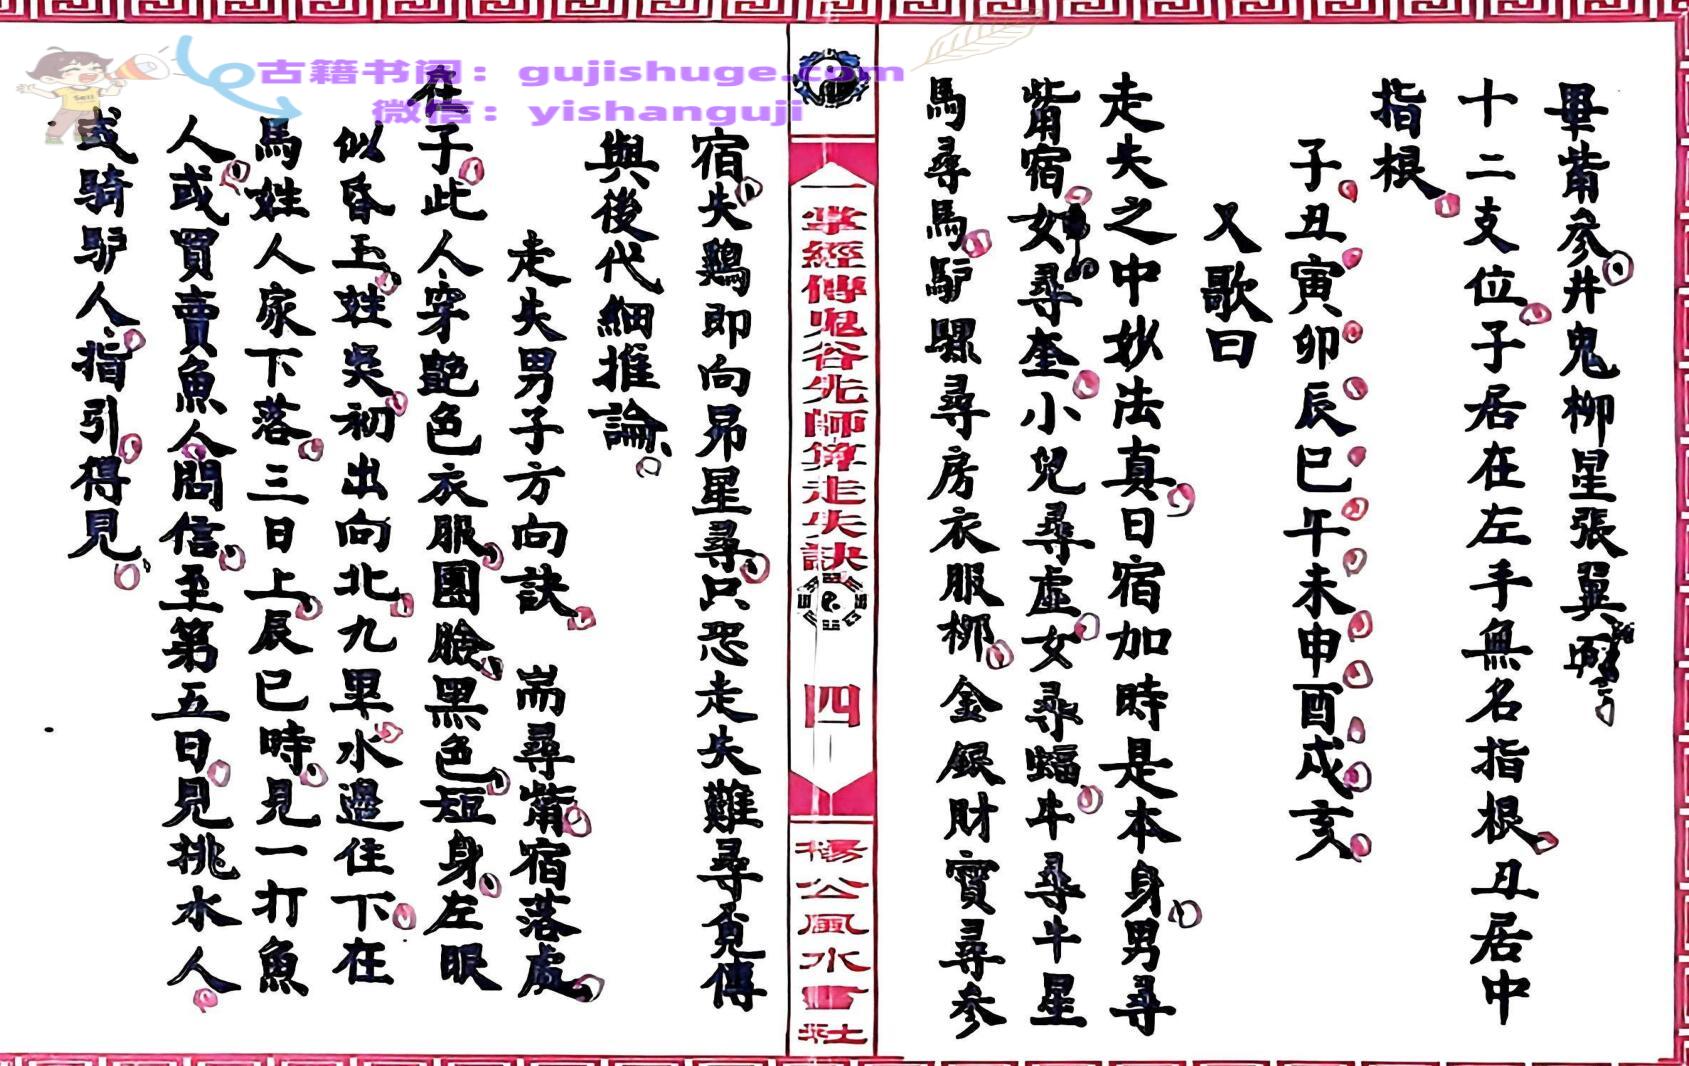 畢觜參井鬼柳星張翼
十二支位子居在左手無名指根丑居中
指根
子丑寅卯辰巳午未申酉戌亥
又歌曰
走失之中妙法真日宿加時是本身男尋
觜宿女尋奎小兒尋虛女尋蝠牛尋牛星
馬尋馬驴騾尋房衣服柳金銀財寶尋參
一掌經傳鬼谷先師算走失訣
四
楊公風水書社
宿失鷄即向昴星尋只恐走失難尋覓傳
與後代細推論
走失男子方向訣 耑尋觜宿落處
在子此人穿艷色衣服團臉黑色短身左眼
似昏玉姓吳初出向北九里水邊住下在
馬姓人家下落三日上辰巳時見一打魚
人或買賣魚人問信至第五日見挑水人
或騎驴人指引得見
古籍书阁：gujishuge.com
微信：yishanguji